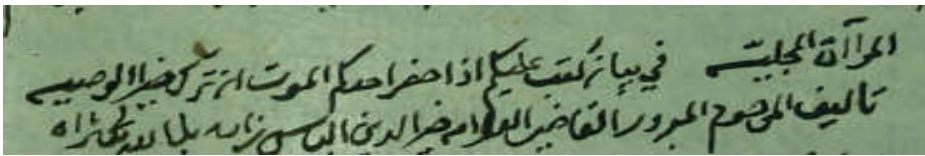 المرآة المجلية في بيان كتب عليكم اذا حضر احدكم الموت ان ترك خيرا الوصيه
تاليف المرحوم المبرور القاضي العلامه خير الدين الياس زاده